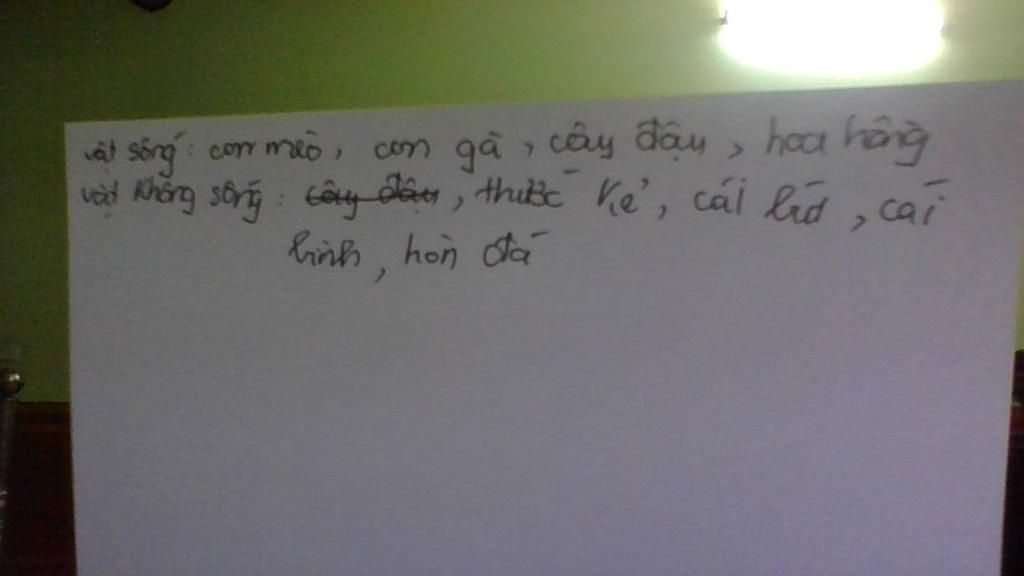 vật sống: con mèo, con gà, cây đậu, hoa hồng
vật không sống: cây đậu, thước kẻ, cái, cái
bình, hòn đá